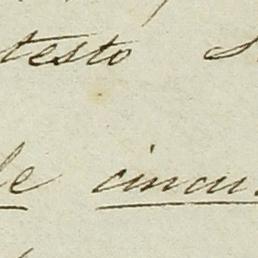 testo
le cincu